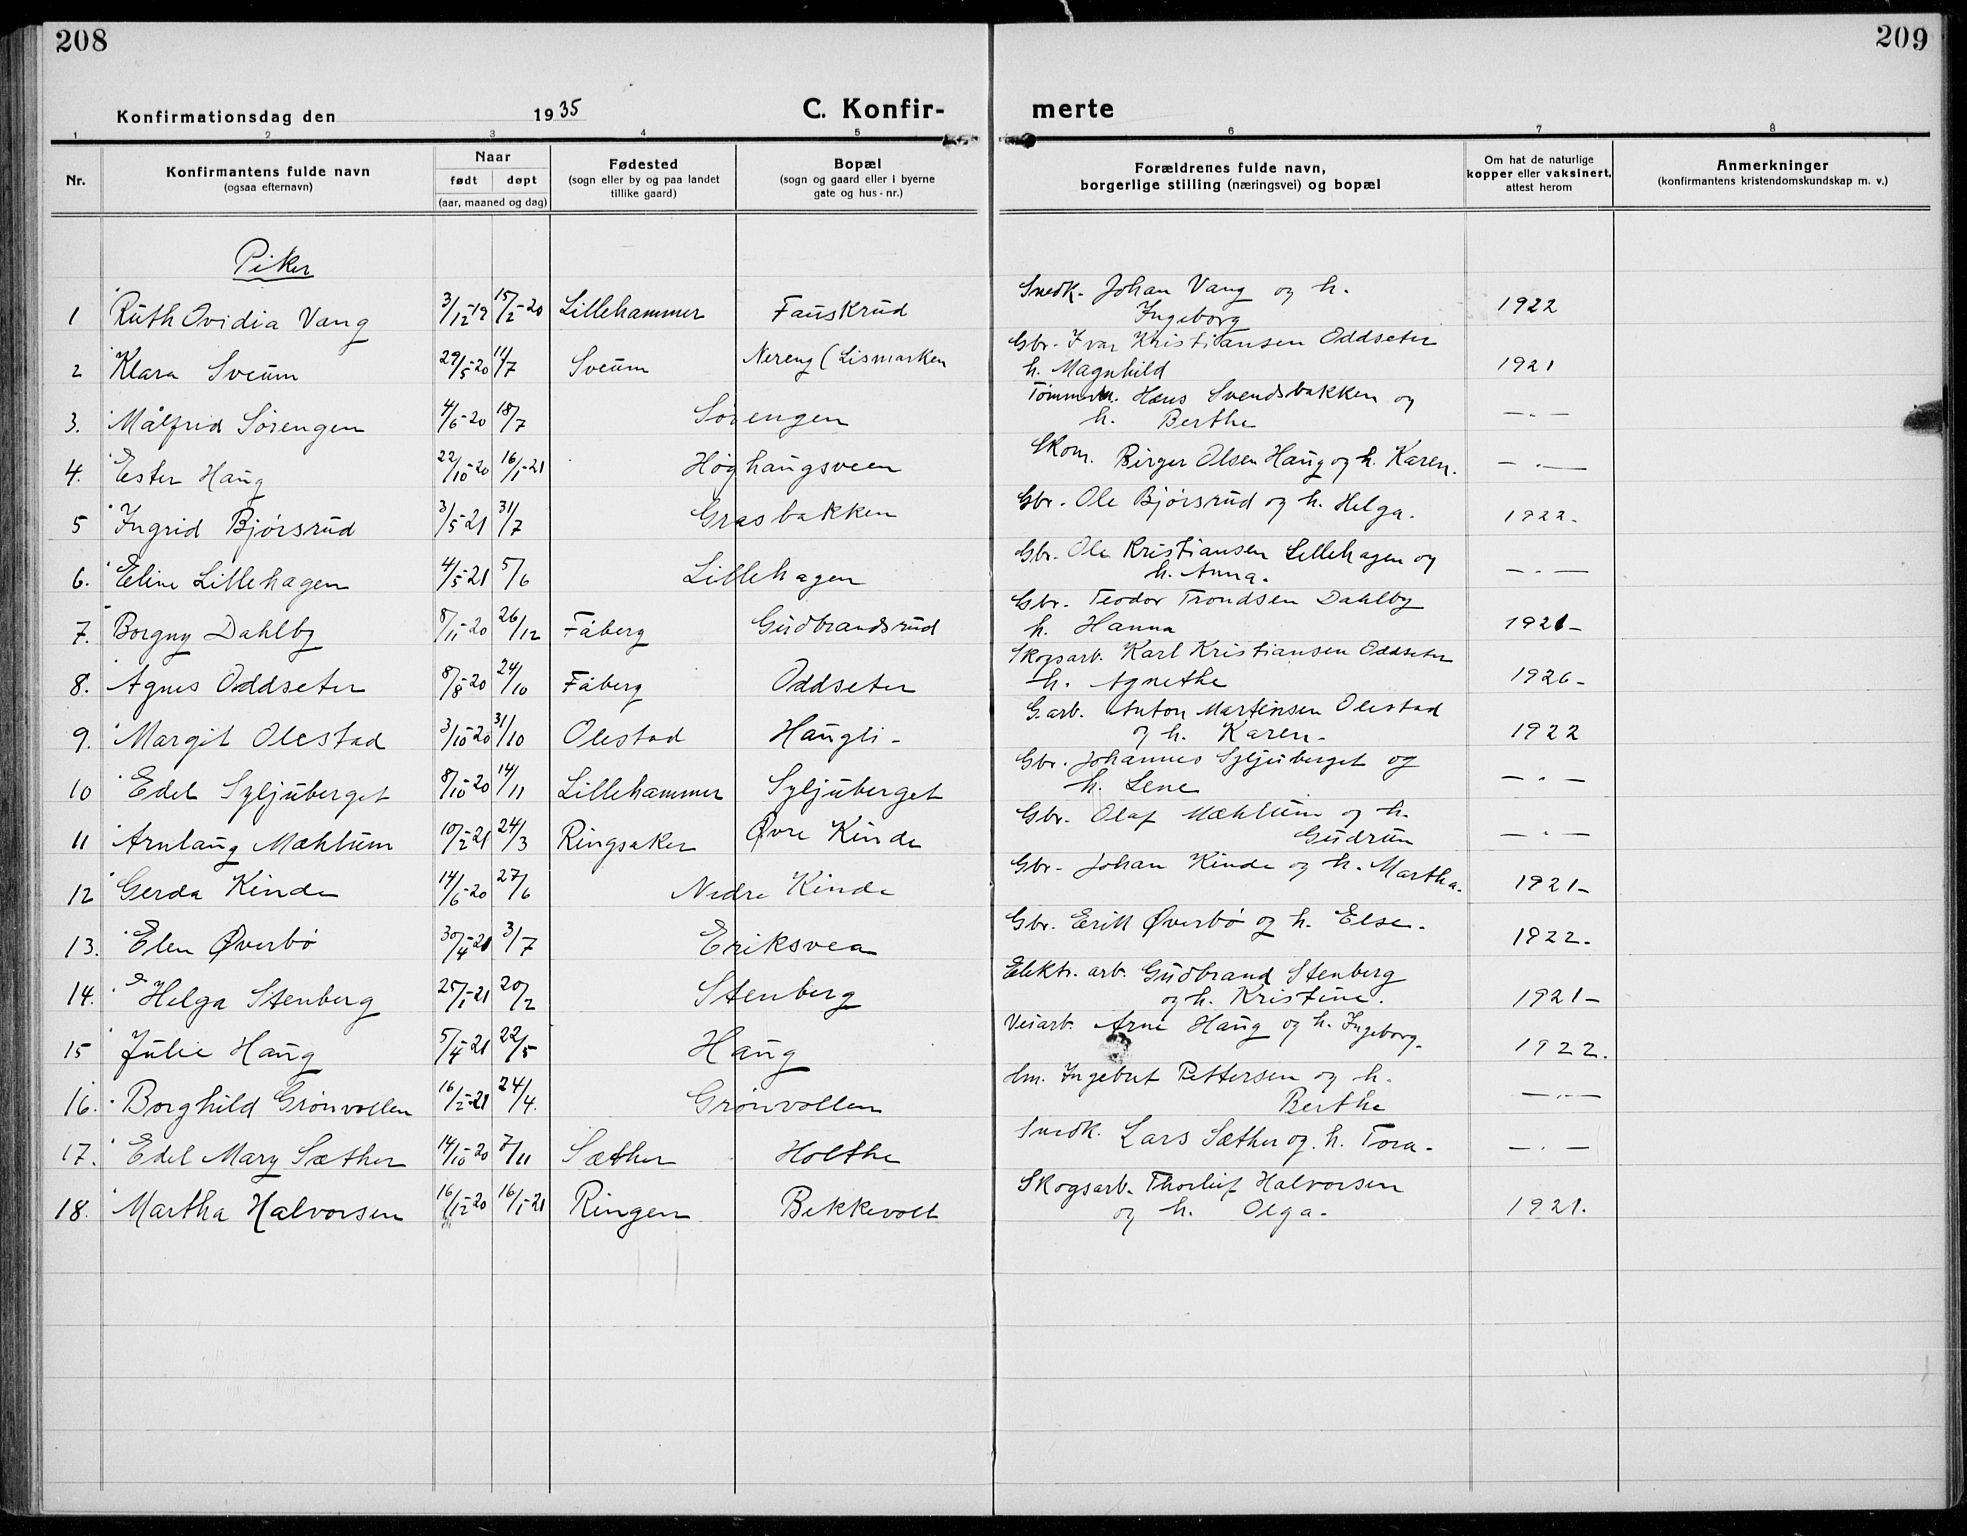 208
209
Konfirmationsdag den 1935
C. Konfir-
merte
1 2 3 4 5 6 7 8
Nr.
Konfirmantens fulde navn
(ogsaa efternavn)
Naar
født døpt
(aar, maaned og dag)
Fødested
(sogn eller by og paa landet
tillike gaard)
Bopæl
(sogn og gaard eller i byerne
gate og hus-nr.)
Forældrenes fulde navn,
borgerlige stilling (næringsvei) og bopæl
Om hat de naturlige
kopper eller vaksinert,
attest herom
Anmerkninger
(konfirmantens kristendomskundskap m. v.)
Piker
1 Ruth Ovidia Vang 3/12-19 15/2-20 Lillehammer Fauskrud Snedk. Johan Vang og h.
Ingeborg 1922
2 Klara Sveum 29/5-20 11/7 Sveum Nereng (Lismarken Gbr. Ivar Kristiansen Oddseter
h. Magnhild 1921
3. Målfrid Sørengen 4/6-20 18/7 Sørengen Tømmerm. Hans Svendsbakken og
h. Berthe — . —
4. Ester Haug 22/10-20 16/1-21 Høghaugsveen Skom. Birger Olsen Haug og h. Karen. — . —
5 Ingrid Bjørsrud 3/5-21 31/7 Grasbakken Gbr. Ole Bjørsrud og h. Helga. 1922.
6. Eline Lillehagen 4/5-21 5/6 Lillehagen Gbr. Ole Kristiansen Lillehagen og
h. Anna. — . —
7. Borgny Dahlby 8/11-20 26/12 Fåberg Gudbrandsrud Gbr. Teodor Trondsen Dahlby
h. Hanna 1921-
8. Agnes Oddseter 8/8-20 24/10 Fåberg Oddseter Skogsarb. Karl Kristiansen Oddseter
h. Agnethe 1926-
9. Margit Olestad 3/10-20 31/10 Olestad Haugli- G.arb. Anton Martinsen Olestad
og h. Karen- 1922
10 Edel Syljuberget 8/10-20 14/11 Lillehammer Syljuberget Gbr. Johannes Syljuberget og
h. Lene — . —
11 Arnlaug Mæhlum 10/2-21 24/3 Ringsaker Øvre Kinde Gbr. Olaf Mæhlum og h.
Gudrun — . —
12 Gerda Kinde 14/6-20 27/6 Nedre Kinde Gbr- Johan Kinde og h. Martha. 1921-
13. Elen Øverbø 30/4-21 3/7 Eriksvea Gbr. Erik Øverbø og h. Else. 1922.
14. Helga Stenberg 25/1-21 20/2 Stenberg Elektr. arb. Gudbrand Stenberg
og h. Kristine. 1921-
15 Julie Haug 5/4-21 22/5 Haug Veiarb. Arne Haug og h. Ingeborg. 1922.
16. Borghild Grønvollen 16/2-21 24/4. Grønvollen Hm. Ingebret Pettersen og h.
Berthe — . —
17. Edel Mary Sæther 14/10-20 7/11 Sæther Holthe Snedk. Lars Sæther og h. Tora- — . —
18. Martha Halvorsen 16/12-20 16/1-21 Ringen Bekkevolt Skogsarb. Thorleif Halvorsen
og h. Olga. 1921.